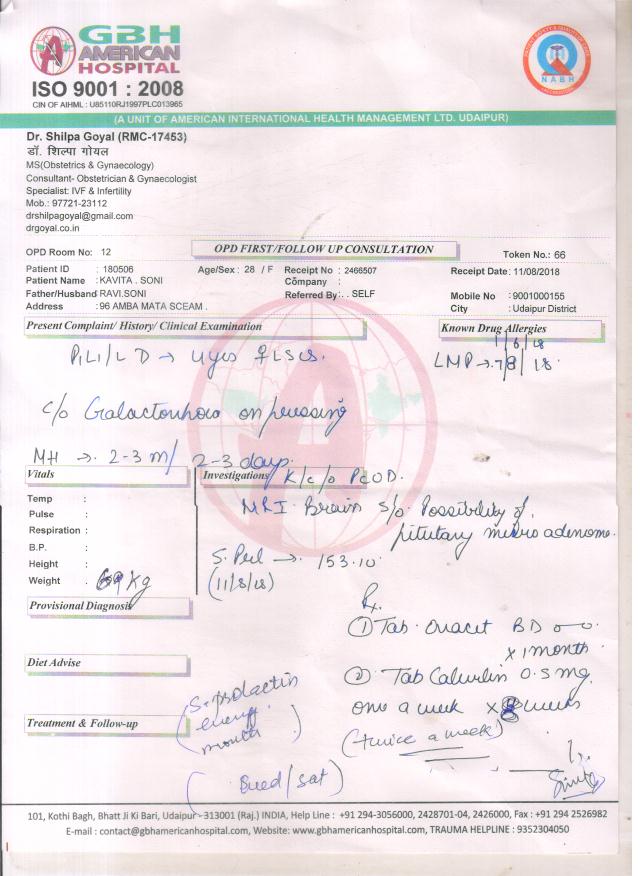 GBH
AMERICAN
HOSPITAL
ISO 9001 : 2008
CIN OF AIHML : U85110RJ1997PLC013965
NABH
(A UNIT OF AMERICAN INTERNATIONAL HEALTH MANAGEMENT LTD. UDAIPUR)
Dr. Shilpa Goyal (RMC-17453)
डॉ. शिल्पा गोयल
MS(Obstetrics & Gynaecology)
Consultant- Obstetrician & Gynaecologist
Specialist: IVF & Infertility
Mob.: 97721-23112
drshilpagoyal@gmail.com
drgoyal.co.in
OPD Room No: 12
OPD FIRST/FOLLOW UP CONSULTATION
Token No.: 66
Patient ID : 180506 Age/Sex : 28 / F Receipt No : 2466507 Receipt Date : 11/08/2018
Patient Name : KAVITA . SONI Company :
Father/Husband RAVI.SONI Referred By : . . SELF Mobile No : 9001000155
Address : 96 AMBA MATA SCEAM . City : Udaipur District
Present Complaint/ History/ Clinical Examination
Known Drug Allergies
1/6/18
P1L1/LD → 4yrs LSCS.
LMP → 7/8/18.
c/o Galactorrhoea on pressing
MH → 2-3m/ 2-3 days.
Vitals
Investigations
K/c/o PCOD.
MRI Brain s/o Possibility of
pitutary micro adenoma.
Temp :
Pulse :
Respiration :
B.P. :
Height :
Weight : 69 Kg
S. Prl → 153.10
(11/8/18)
Provisional Diagnosis
Rx.
① Tab. BD
x 1 month
Diet Advise
② Tab 0.5 mg.
one a week x 8 weeks
(twice a week)
S. prolactin
every
month
Treatment & Follow-up
(Bued/sat)
101, Kothi Bagh, Bhatt Ji Ki Bari, Udaipur - 313001 (Raj.) INDIA, Help Line : +91 294-3056000, 2428701-04, 2426000, Fax : +91 294 2526982
E-mail : contact@gbhamericanhospital.com, Website: www.gbhamericanhospital.com, TRAUMA HELPLINE : 9352304050